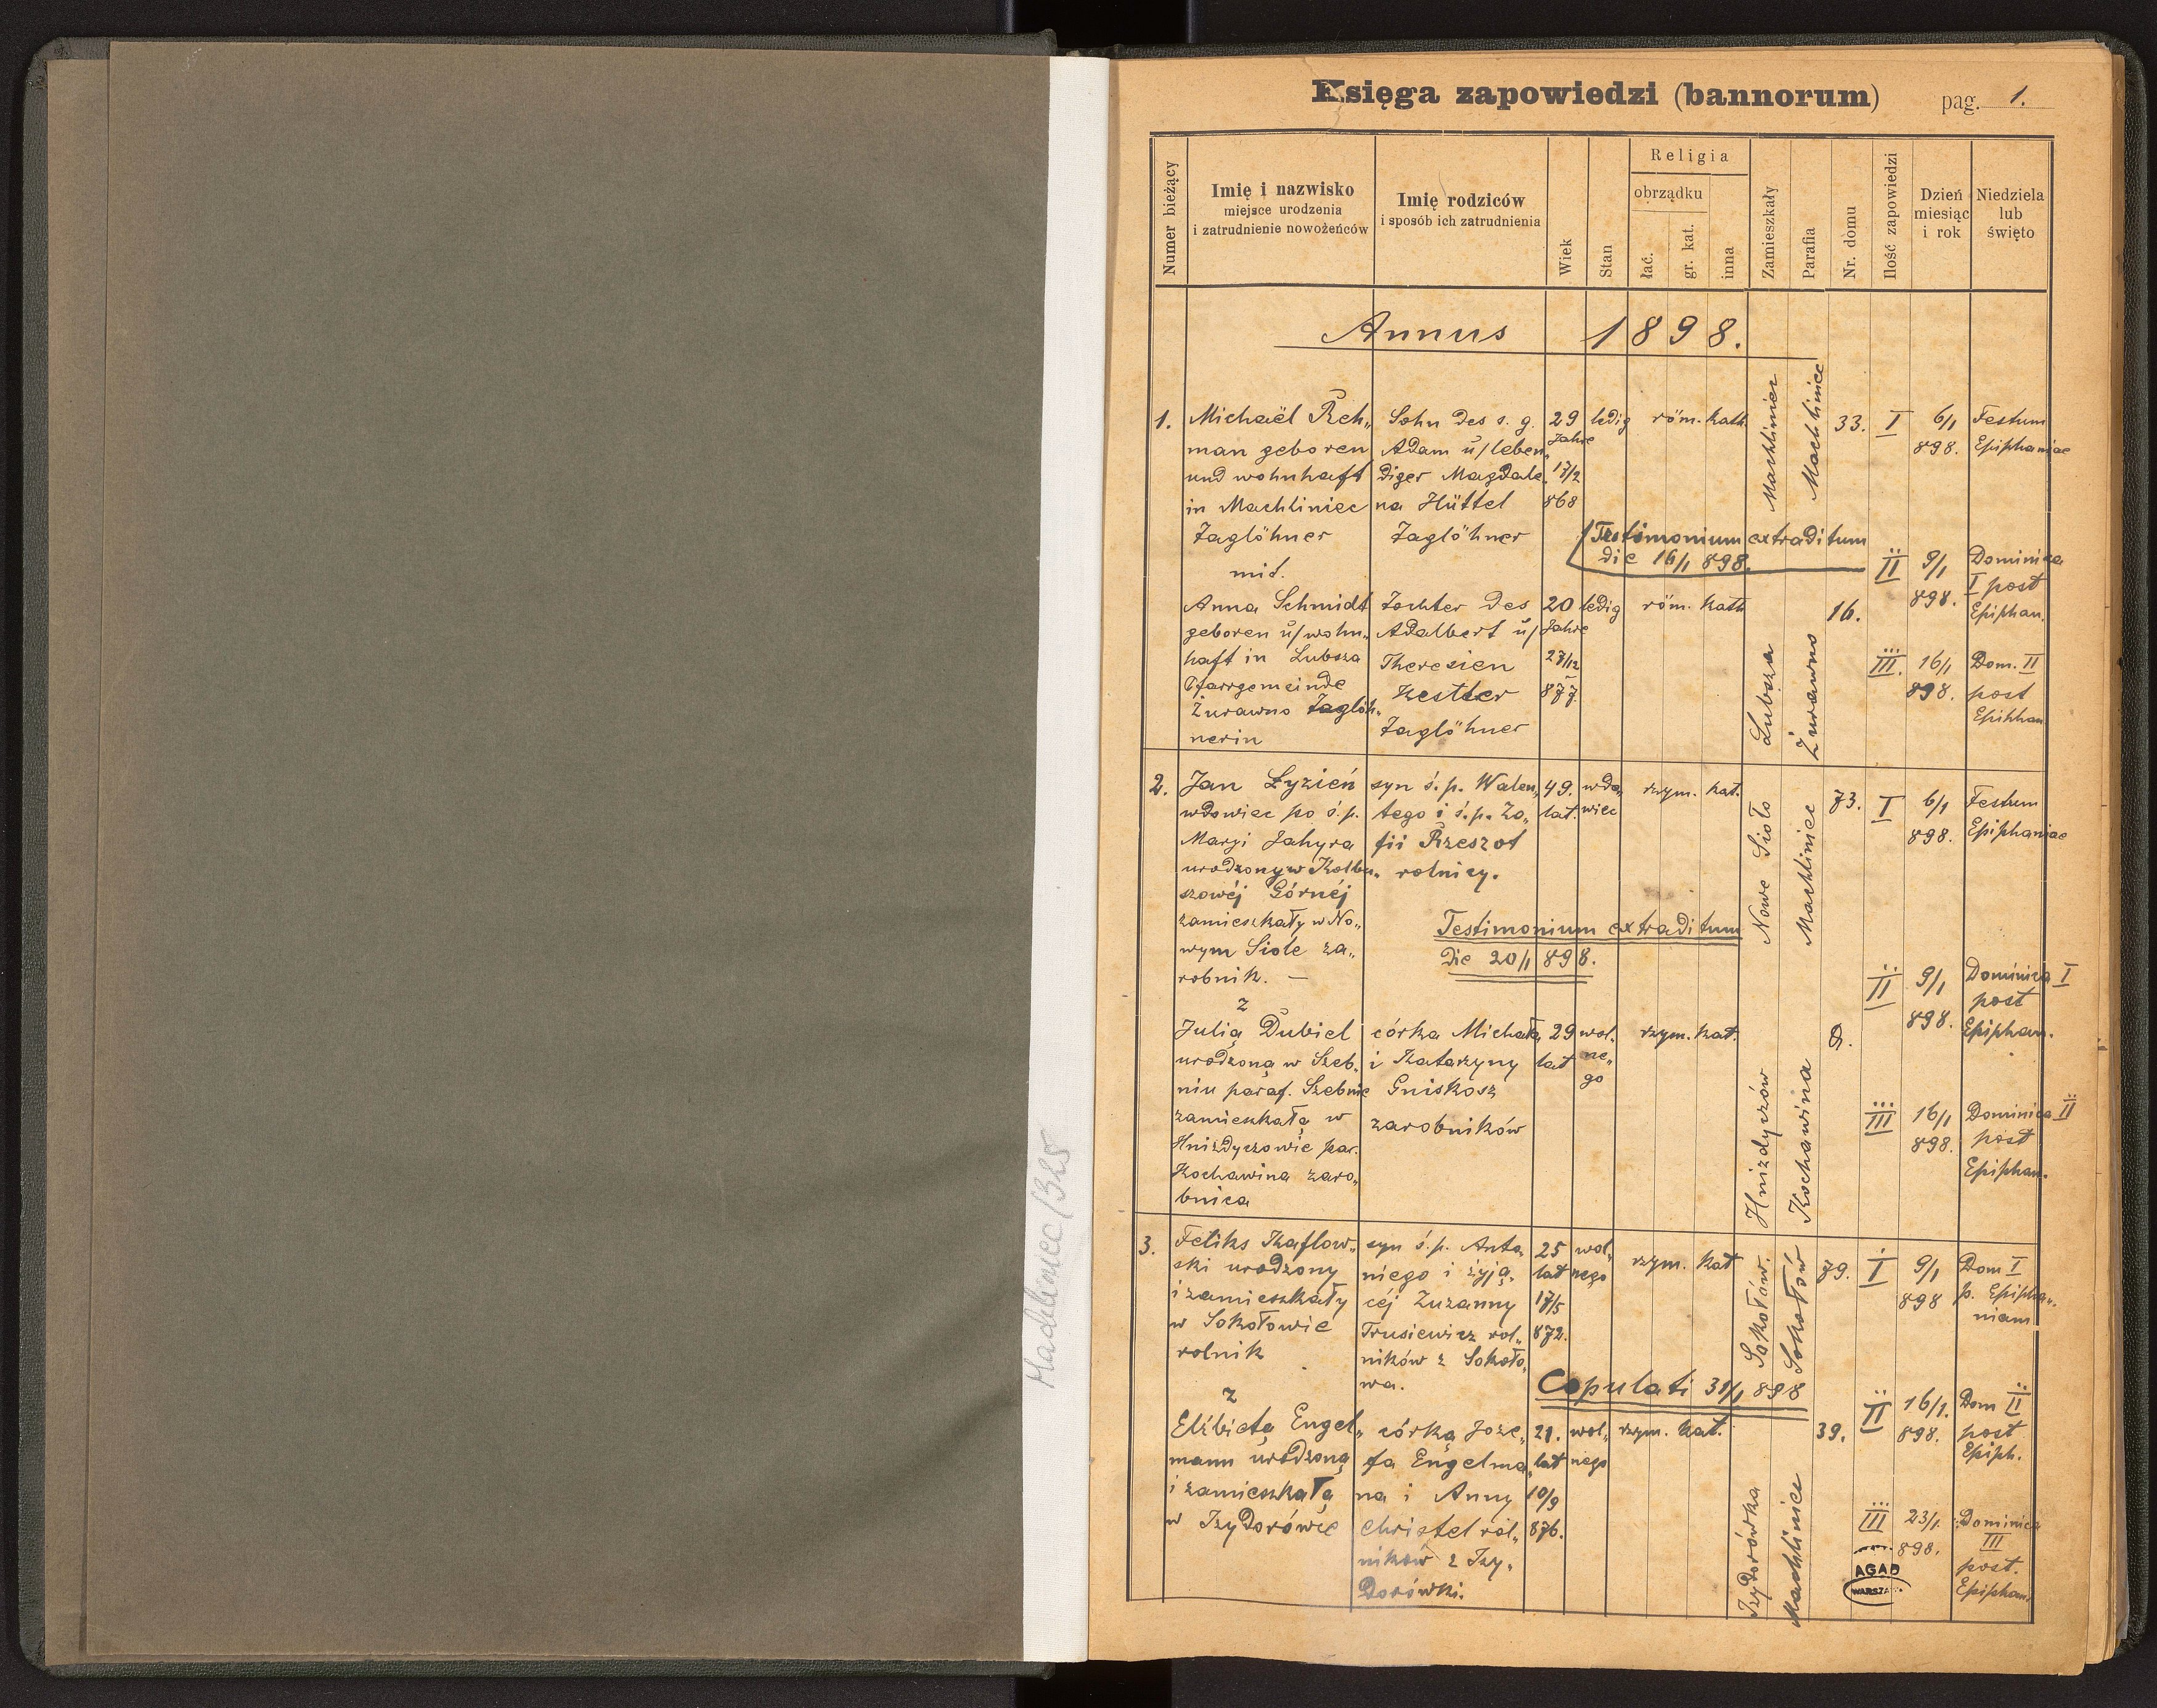 Machliniec/325
Księga zapowiedzi (bannorum)
pag. 1.
Numer bieżący
Imię i nazwisko
miejsce urodzenia
i zatrudnienie nowożeńców
Imię rodziców
i sposób ich zatrudnienia
Wiek
Stan
Religia
obrządku
łać.
gr. kat.
inna
Zamieszkały
Parafia
Nr. domu
Ilość zapowiedzi
Dzień
miesiąc
i rok
Niedziela
lub
święto
Annus 1898.
1.
Michaël Reh„
man geboren
und wohnhaft
in Machliniec
Taglöhner
mit
Sohn des s. g.
Adam u/ leben„
diger Magdale„
na Hüttel
Taglöhner
29
Jahre
17/2
868
ledig
röm. kath.
Machliniec
Machliniec
33.
I
6/1
898.
Festum
Epiphaniae
Testimonium extraditum
die 16/1 898.
II
9/1
898.
Dominica
I post
Epiphan.
Anna Schmidt
geboren u/ wohn„
haft in Lubsza
Pfarrgemeinde
Żurawno Taglöh„
nerin
Tochter des
Adalbert u/
Theresien
Kestler
Taglöhner
20
Jahre
27/12
877.
ledig
röm. kath
Lubsza
Żurawno
16.
III.
16/1
898.
Dom. II
post
Epiphan.
2.
Jan Łyzień
wdowiec po ś. p.
Maryi Jahyra
urodzony w Kolbu„
szowéj Górnéj
zamieszkały w No„
wym Siole za„
robnik. —
z
syn ś. p. Walen„
tego i ś. p. Zo„
fii Rzeszot
rolnicy.
49.
lat.
wdo„
wiec
rzym. kat.
Nowe Sioło
Machliniec
73.
I
6/1
898.
Festum
Epiphaniae
Testimonium extraditum
die 20/1 898.
II
9/1
898.
Dominica I
post
Epiphan.
Julią Dubiel
urodzoną w Szeb„
niu paraf. Szebnie
zamieszkałą w
Hnizdyczowie par.
Kochawina zaro„
bnica
córka Michała
i Katarzyny
Gniskosz
zarobników
29
lat
wol„
ne„
go
rzym. kat.
Hnizdyczów
Kochawina
III
16/1
898.
Dominica II
post
Epiphan.
3.
Feliks Kaflow„
ski urodzony
i zamieszkały
w Sokołowie
rolnik
z
syn ś. p. Anto„
niego i żyją„
céj Zuzanny
Trusiewicz rol„
ników z Sokoło„
wa.
25
lat
17/5
872.
wol„
nego
rzym. kat
Sokołów.
Sokołów
79.
I
9/1
898
Dom I
p. Epipha„
niam
Copulati 31/1 898
II
16/1.
898.
Dom II
post
Epiph.
Elżbietą Engel„
mann urodzoną
i zamieszkałą
w Izydorówce
córką Joze„
fa Engelma„
na i Anny
Christel rol„
ników z Izy„
dorówki.
21.
lat
10/9
876.
wol„
nego
rzym. kat.
Izydorówka
Machliniec
39.
III
23/1.
898.
Dominica
III
post.
Epiphan.
AGAD
WARSZAWA